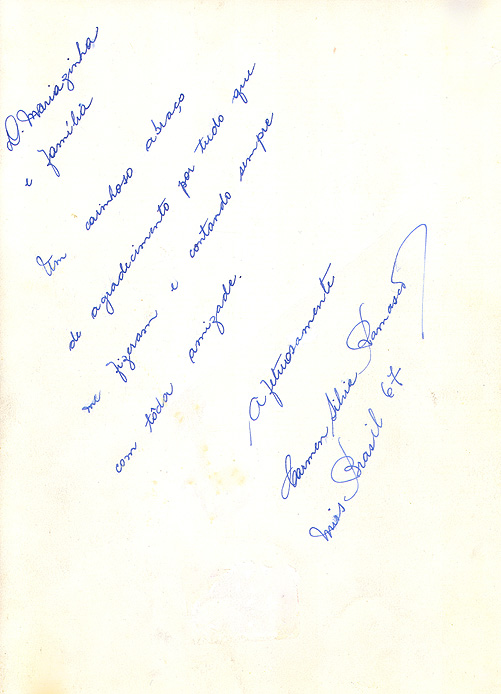 D. Mariazinha
e família
Um carinhoso abraço
de agradecimento por tudo que
me fizeram e contando sempre
com tôda amizade.
Afetuosamente
Carmen Silvia Ramasco
Miss Brasil 67